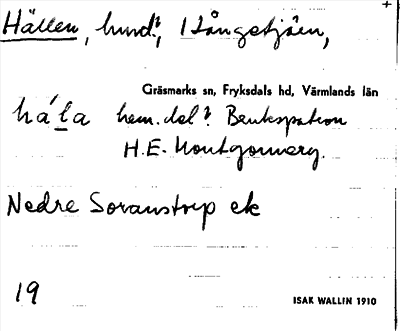 Hällen, hmd?, 1 Långetjärn,
Gräsmarks sn, Fryksdals hd, Värmlands län
hem. del? Brukspatron
H.E. Montgomery.
Nedre
ek
19
ISAK WALLIN 1910